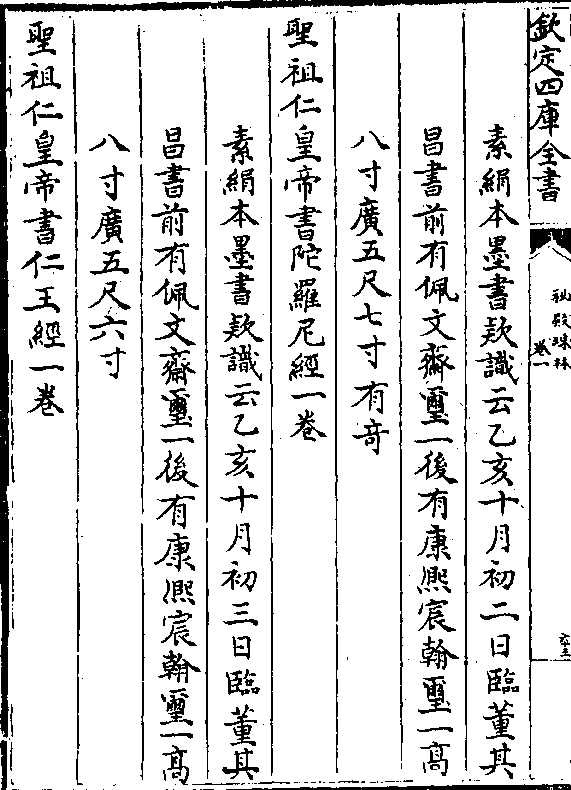 欽定四庫全書
秘殿珠林
卷一
六十三
素絹本墨書欵識云乙亥十月初二日臨董其
昌書前有佩文齋璽一後有康熙宸翰璽一高
八寸廣五尺七寸有竒
聖祖仁皇帝書陀羅尼經一卷
素絹本墨書欵識云乙亥十月初三日臨董其
昌書前有佩文齋璽一後有康熙宸翰璽一高
八寸廣五尺六寸
聖祖仁皇帝書仁王經一卷